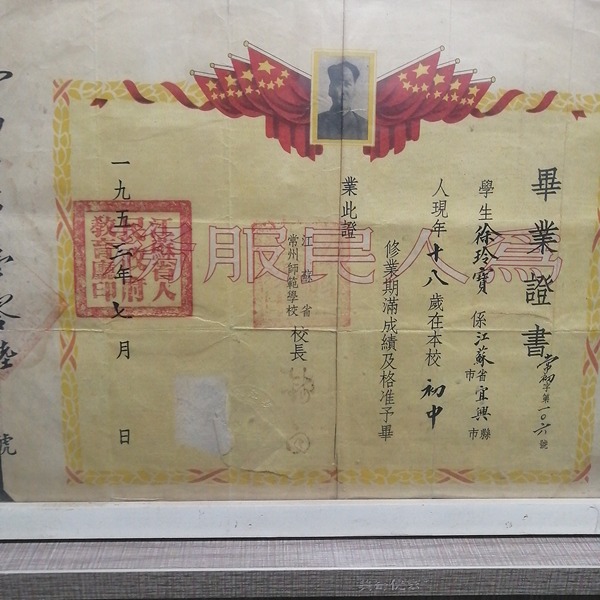 畢業證書
常初字第一〇六號
學生徐玲寶係江蘇省市宜興縣市
人現年十八歲在本校初中
修業期滿成績及格准予畢
業此證
江蘇省
常州師範學校
校長
一九五三年七月 日
為人民服務
江蘇省人民政府教育廳印
號